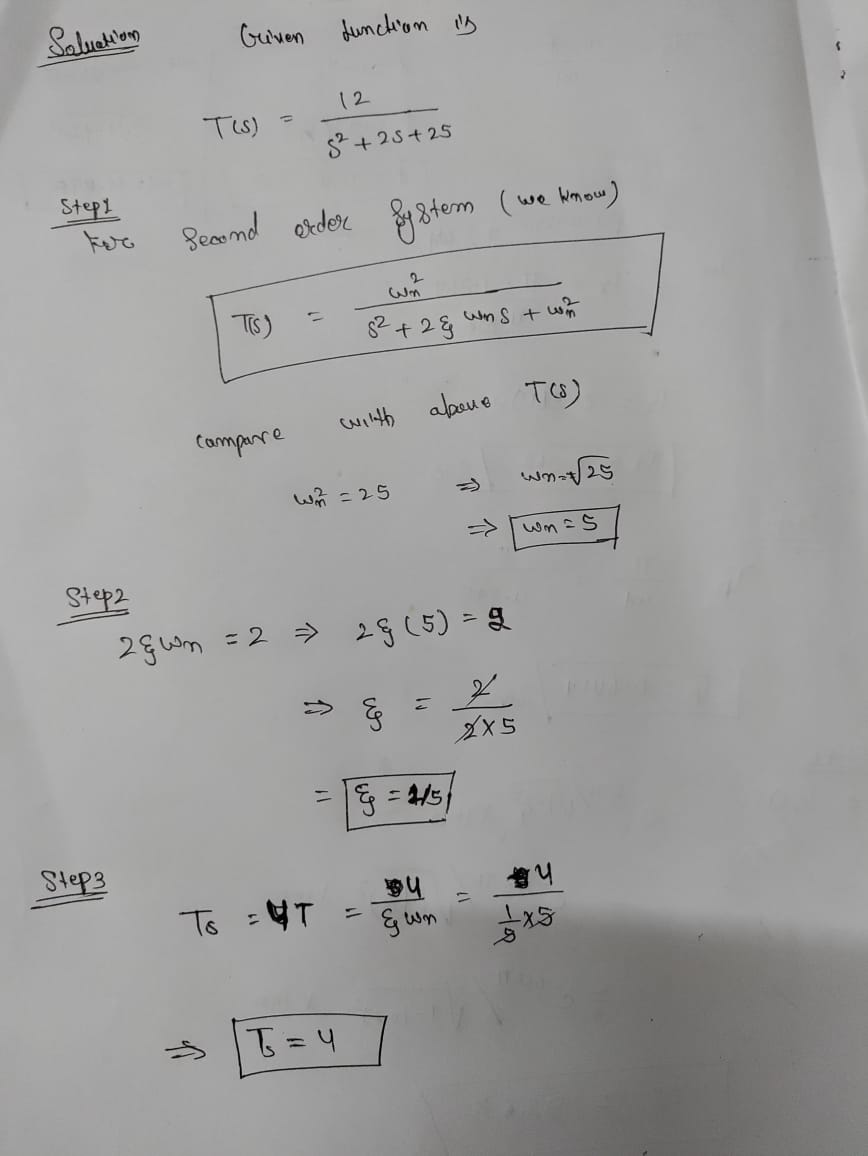 Solution Given function is
T(s) = 12 / s² + 2s + 25
Step1
For Second order System (we know)
T(s) = ωn² / s² + 2ξ ωn s + ωn²
compare with above T(s)
ωn² = 25 ⇒ ωn = √25
⇒ ωn = 5
Step2
2ξωn = 2 ⇒ 2ξ(5) = 2
⇒ ξ = 2 / 2×5
= ξ = 1/5
Step3
Ts = 4T = 4 / ξωn = 4 / 1/5 ×5
⇒ Ts = 4